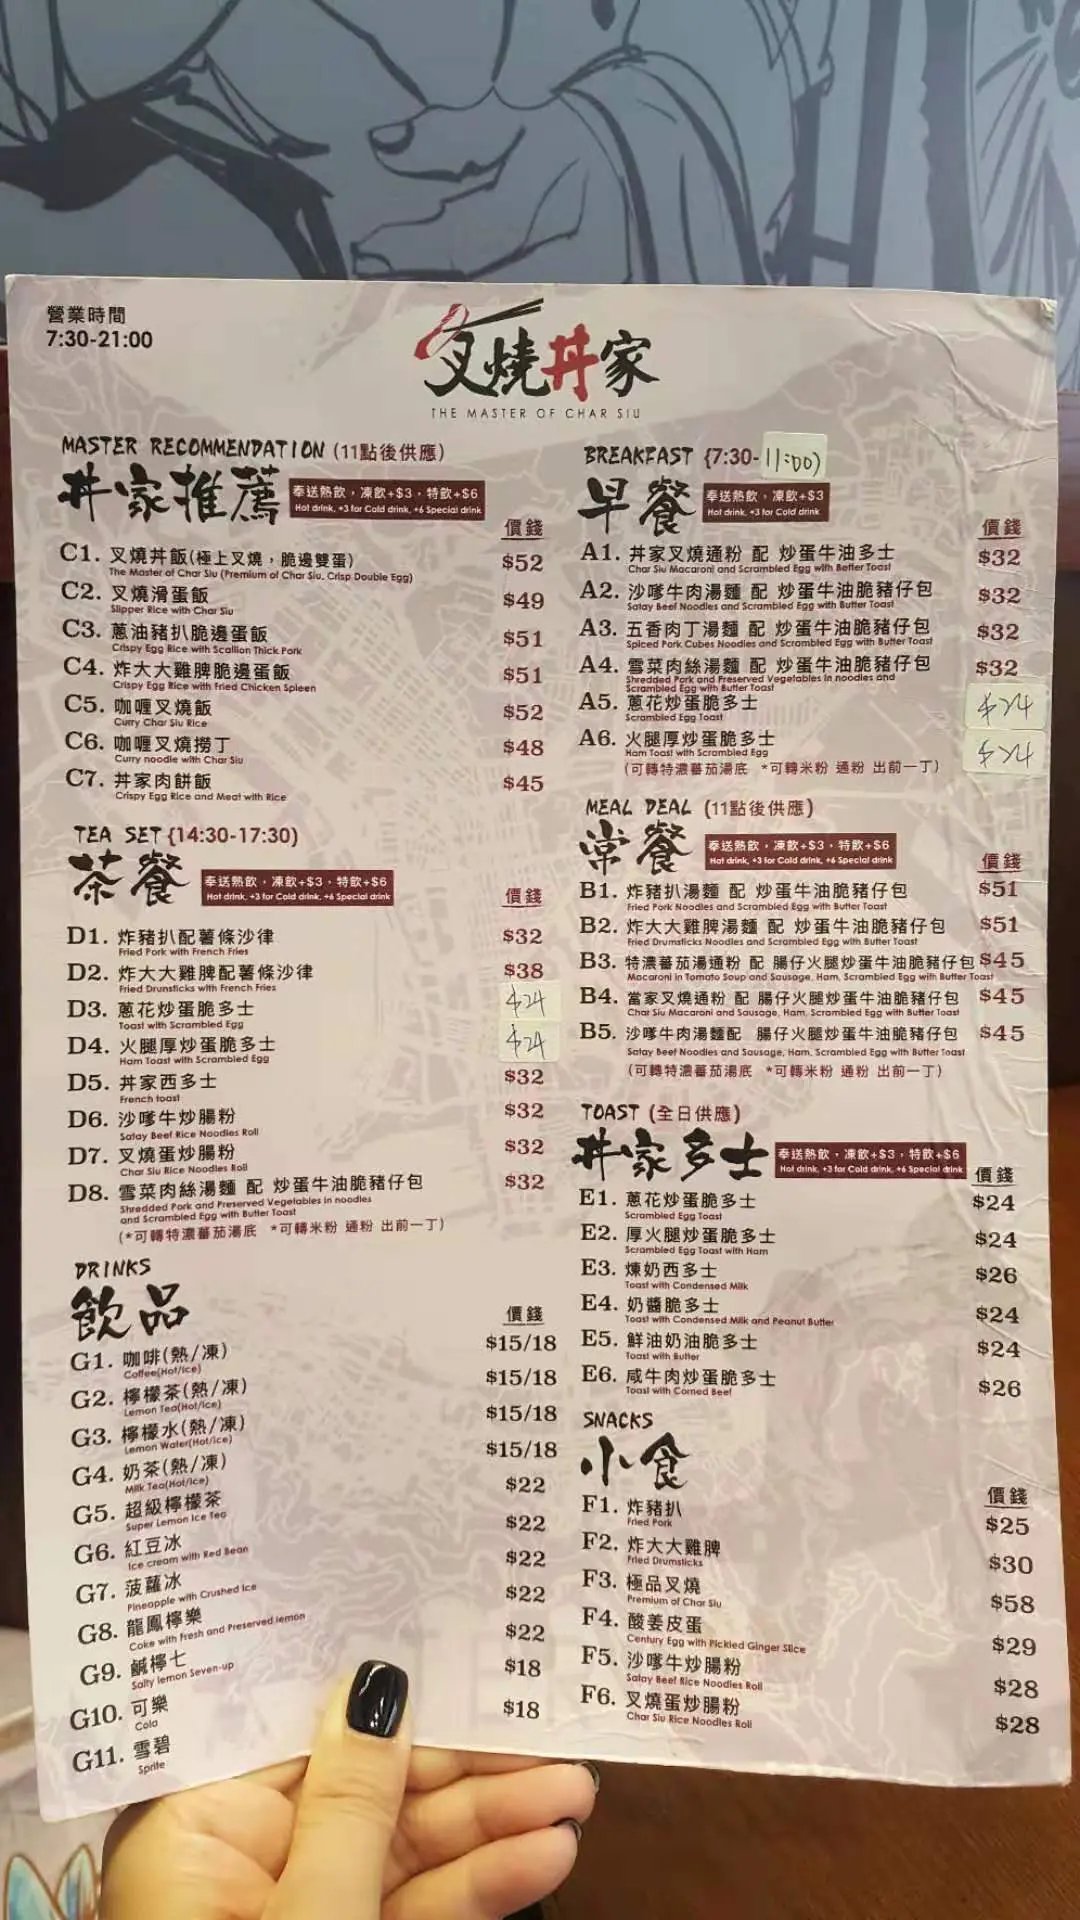 營業時間
7:30-21:00
叉燒丼家
THE MASTER OF CHAR SIU
MASTER RECOMMENDATION (11點後供應)
丼家推薦
奉送熱飲，凍飲+$3，特飲+$6
Hot drink, +3 for Cold drink, +6 Special drink
價錢
C1. 叉燒丼飯(極上叉燒，脆邊雙蛋) $52
The Master of Char Siu (Premium of Char Siu, Crisp Double Egg)
C2. 叉燒滑蛋飯 $49
Slipper Rice with Char Siu
C3. 蔥油豬扒脆邊蛋飯 $51
Crispy Egg Rice with Scallion Thick Pork
C4. 炸大大雞脾脆邊蛋飯 $51
Crispy Egg Rice with Fried Chicken Spleen
C5. 咖喱叉燒飯 $52
Curry Char Siu Rice
C6. 咖喱叉燒撈丁 $48
Curry noodle with Char Siu
C7. 丼家肉餅飯 $45
Crispy Egg Rice and Meat with Rice
TEA SET {14:30-17:30)
茶餐
奉送熱飲，凍飲+$3，特飲+$6
Hot drink, +3 for Cold drink, +6 Special drink
價錢
D1. 炸豬扒配薯條沙律 $32
Fried Pork with French Fries
D2. 炸大大雞脾配薯條沙律 $38
Fried Drunsticks with French Fries
D3. 蔥花炒蛋脆多士 $24
Toast with Scrambled Egg
D4. 火腿厚炒蛋脆多士 $24
Ham Toast with Scrambled Egg
D5. 丼家西多士 $32
French toast
D6. 沙嗲牛炒腸粉 $32
Satay Beef Rice Noodles Roll
D7. 叉燒蛋炒腸粉 $32
Char Siu Rice Noodles Roll
D8. 雪菜肉絲湯麵 配 炒蛋牛油脆豬仔包 $32
Shredded Pork and Preserved Vegetables in noodles
and Scrambled Egg with Butter Toast
(*可轉特濃蕃茄湯底 *可轉米粉 通粉 出前一丁)
DRINKS
飲品
價錢
G1. 咖啡(熱/凍) $15/18
Coffee(Hot/Ice)
G2. 檸檬茶(熱/凍) $15/18
Lemon Tea(Hot/Ice)
G3. 檸檬水(熱/凍) $15/18
Lemon Water(Hot/Ice)
G4. 奶茶(熱/凍) $15/18
Milk Tea(Hot/Ice)
G5. 超級檸檬茶 $22
Super Lemon Ice Tea
G6. 紅豆冰 $22
Ice cream with Red Bean
G7. 菠蘿冰 $22
Pineapple with Crushed Ice
G8. 龍鳳檸樂 $22
Coke with Fresh and Preserved lemon
G9. 鹹檸七 $22
Salty lemon Seven-up
G10. 可樂 $18
Cola
G11. 雪碧 $18
Sprite
BREAKFAST {7:30-11:00)
早餐
奉送熱飲，凍飲+$3
Hot drink, +3 for Cold drink
價錢
A1. 丼家叉燒通粉 配 炒蛋牛油多士 $32
Char Siu Macaroni and Scrambled Egg with Better Toast
A2. 沙嗲牛肉湯麵 配 炒蛋牛油脆豬仔包 $32
Satay Beef Noodles and Scrambled Egg with Butter Toast
A3. 五香肉丁湯麵 配 炒蛋牛油脆豬仔包 $32
Spiced Pork Cubes Noodles and Scrambled Egg with Butter Toast
A4. 雪菜肉絲湯麵 配 炒蛋牛油脆豬仔包 $32
Shredded Pork and Preserved Vegetables in noodles and
Scrambled Egg with Butter Toast
A5. 蔥花炒蛋脆多士 $24
Scrambled Egg Toast
A6. 火腿厚炒蛋脆多士 $24
Ham Toast with Scrambled Egg
(可轉特濃蕃茄湯底 *可轉米粉 通粉 出前一丁)
MEAL DEAL (11點後供應)
常餐
奉送熱飲，凍飲+$3，特飲+$6
Hot drink, +3 for Cold drink, +6 Special drink
價錢
B1. 炸豬扒湯麵 配 炒蛋牛油脆豬仔包 $51
Fried Pork Noodles and Scrambled Egg with Butter Toast
B2. 炸大大雞脾湯麵 配 炒蛋牛油脆豬仔包 $51
Fried Drumsticks Noodles and Scrambled Egg with Butter Toast
B3. 特濃蕃茄湯通粉 配 腸仔火腿炒蛋牛油脆豬仔包 $45
Macaroni in Tomato Soup and Sausage, Ham, Scrambled Egg with Butter Toast
B4. 當家叉燒通粉 配 腸仔火腿炒蛋牛油脆豬仔包 $45
Char Siu Macaroni and Sausage, Ham, Scrambled Egg with Butter Toast
B5. 沙嗲牛肉湯麵配 腸仔火腿炒蛋牛油脆豬仔包 $45
Satay Beef Noodles and Sausage, Ham, Scrambled Egg with Butter Toast
(可轉特濃蕃茄湯底 *可轉米粉 通粉 出前一丁)
TOAST (全日供應)
丼家多士
奉送熱飲，凍飲+$3，特飲+$6
Hot drink, +3 for Cold drink, +6 Special drink
價錢
E1. 蔥花炒蛋脆多士 $24
Scrambled Egg Toast
E2. 厚火腿炒蛋脆多士 $24
Scrambled Egg Toast with Ham
E3. 煉奶西多士 $26
Toast with Condensed Milk
E4. 奶醬脆多士 $24
Toast with Condensed Milk and Peanut Butter
E5. 鮮油奶油脆多士 $24
Toast with Butter
E6. 咸牛肉炒蛋脆多士 $26
Toast with Corned Beef
SNACKS
小食
價錢
F1. 炸豬扒 $25
Fried Pork
F2. 炸大大雞脾 $30
Fried Drumsticks
F3. 極品叉燒 $58
Premium of Char Siu
F4. 酸姜皮蛋 $29
Century Egg with Pickled Ginger Slice
F5. 沙嗲牛炒腸粉 $28
Satay Beef Rice Noodles Roll
F6. 叉燒蛋炒腸粉 $28
Char Siu Rice Noodles Roll